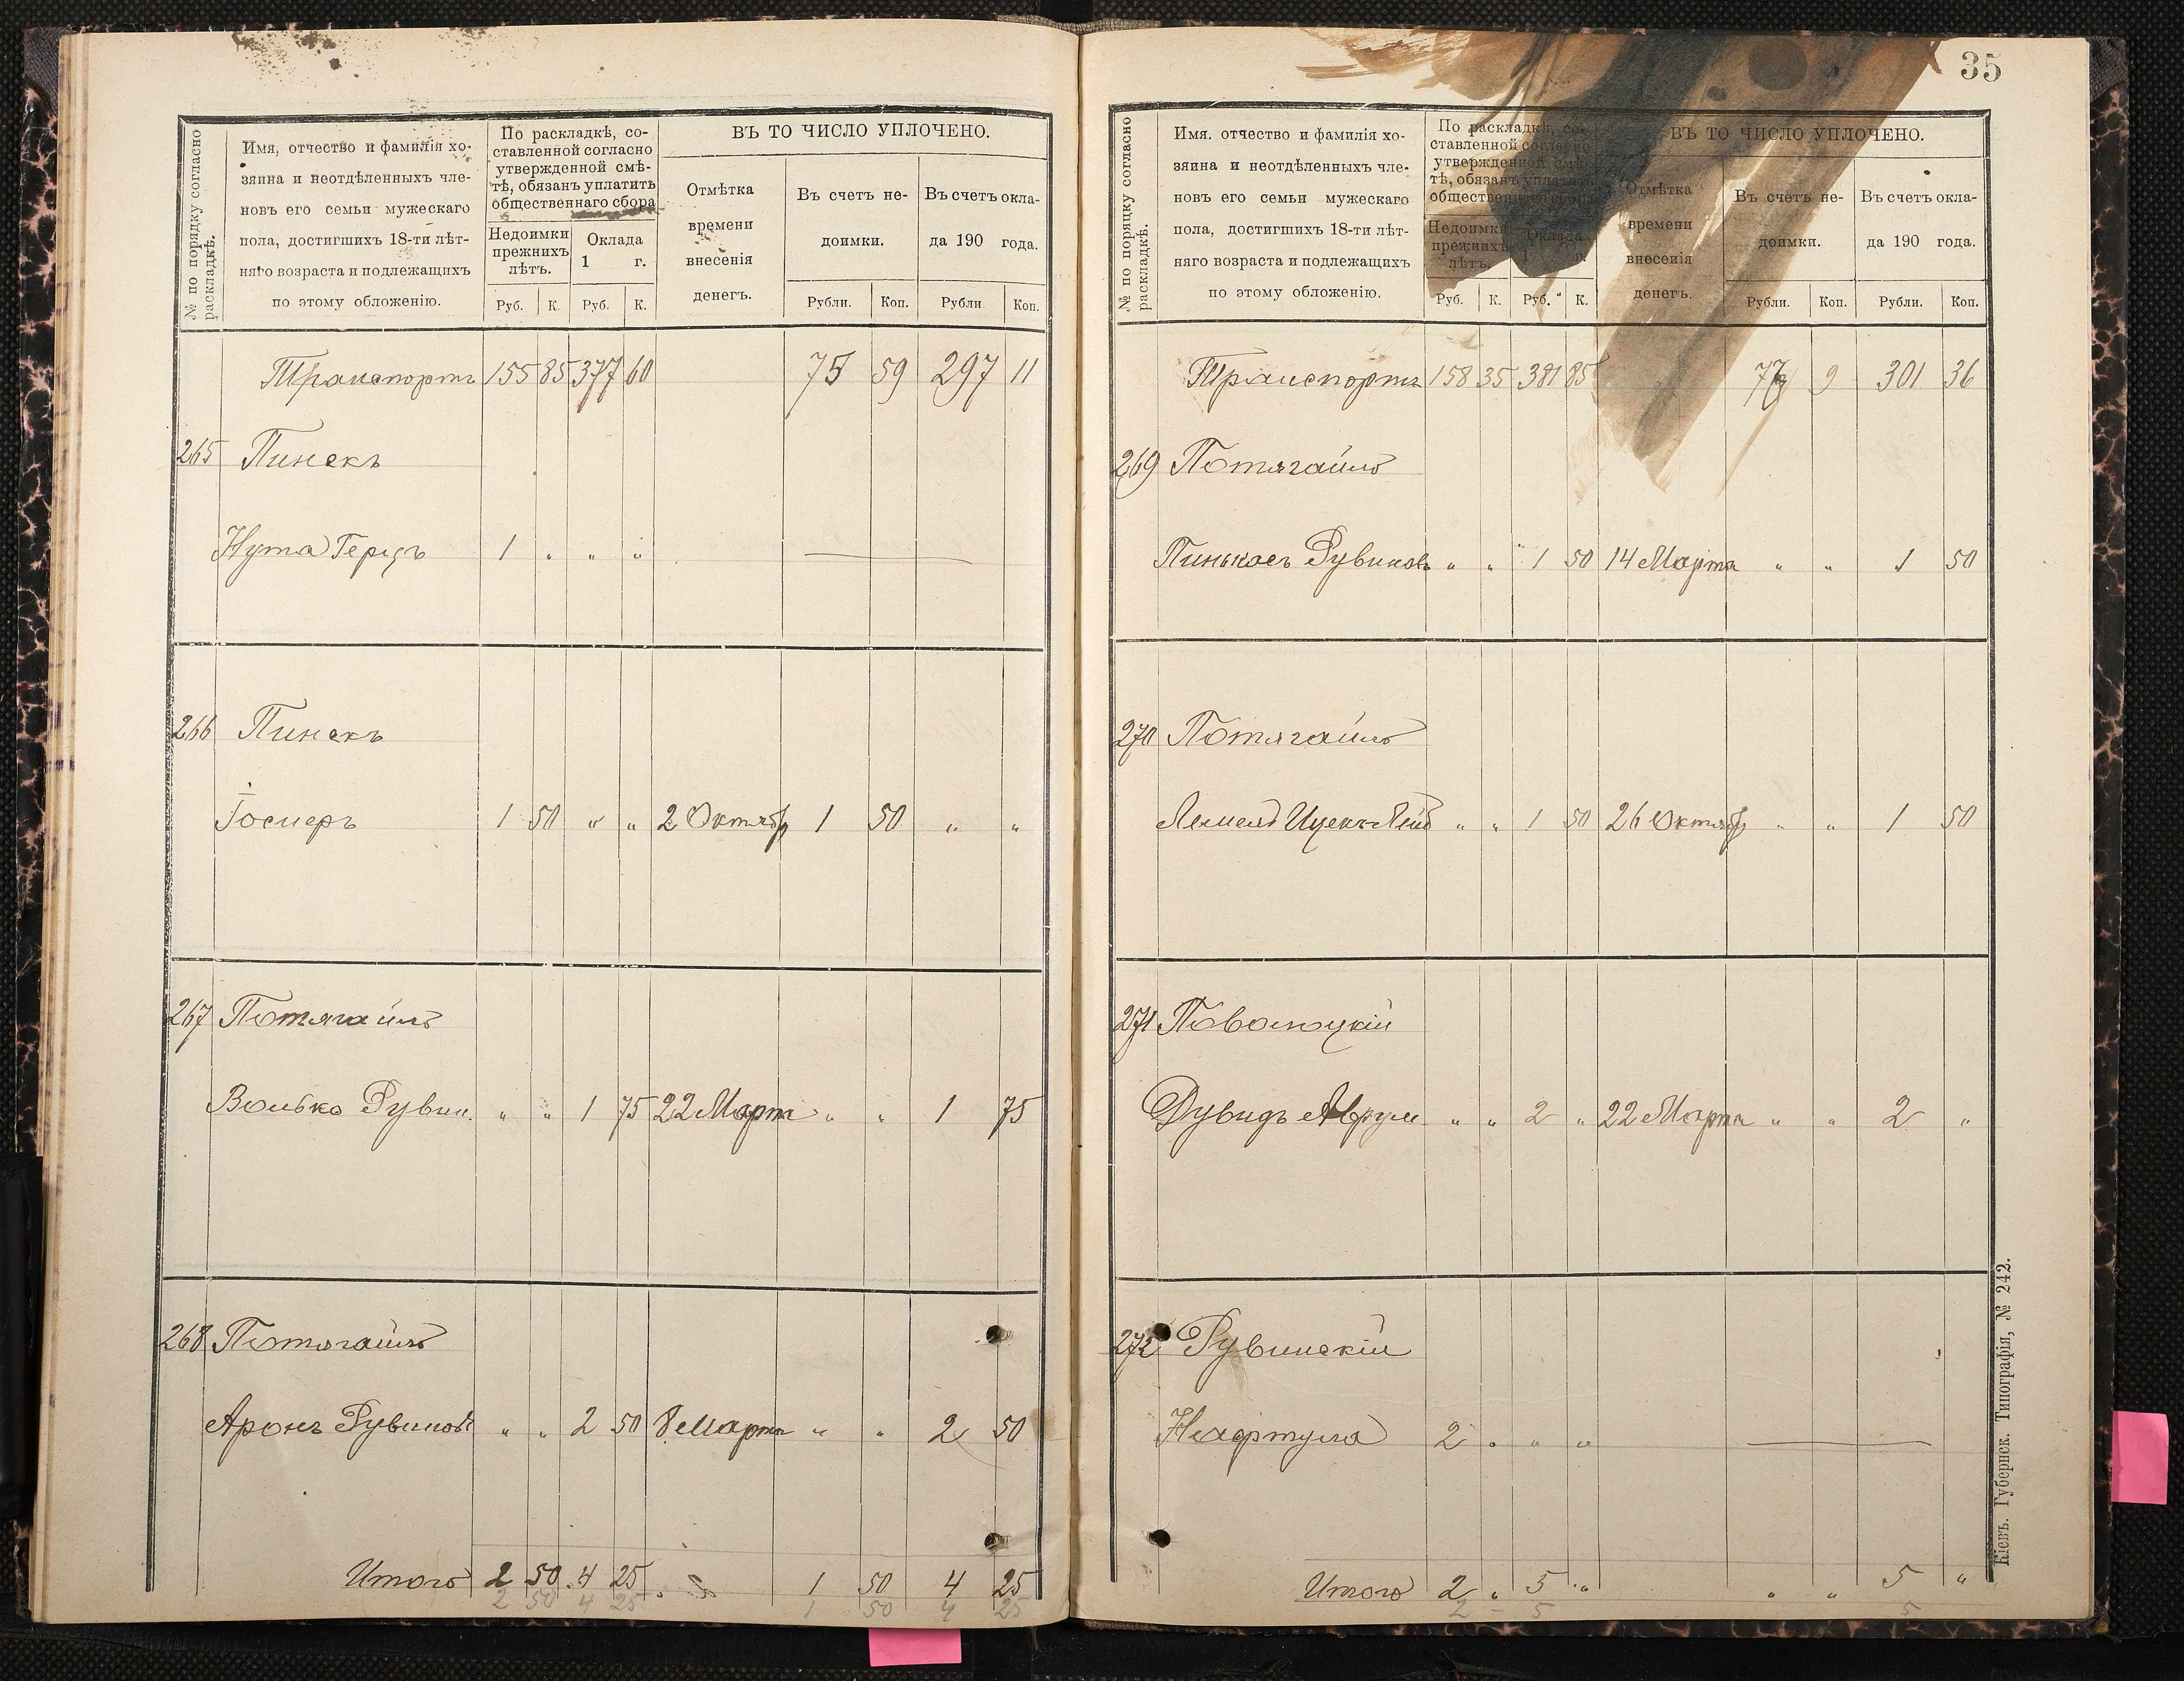 № по порядку согласно раскладкѣ.
Имя, отчество и фамилія хо-
зяина и неотдѣленныхъ чле-
новъ его семьи мужескаго
пола, достигшихъ 18-ти лѣт-
няго возраста и подлежащихъ
по этому обложенію.
По раскладкѣ, со-
ставленной согласно
утвержденной смѣ-
тѣ, обязанъ уплатить
общественнаго сбора
Недоимки
прежнихъ
лѣтъ.
Оклада
1 г.
Руб. К. Руб. К.
ВЪ ТО ЧИСЛО УПЛОЧЕНО.
Отмѣтка
времени
внесенія
денегъ.
Въ счетъ не-
доимки.
Въ счетъ окла-
да 190 года.
Рубли. Коп. Рубли Коп.
Транспортъ 155 85 377 60 75 59 297 11
265 Пинскъ
Нута Герцъ 1 " " "
266 Пинскъ
Іосперъ 1 50 " " 2 Октябр 1 50 " "
267 Потягайло
Волько Рувин. " " 1 75 22 Марта " " 1 75
268 Потягайло
Аронъ Рувинов " " 2 50 8 Марта " " 2 50
Итого 2 50 4 25 1 50 4 25
2 50 4 25 1 50 4 25
35
№ по порядку согласно раскладкѣ.
Имя, отчество и фамилія хо-
зяина и неотдѣленныхъ чле-
новъ его семьи мужескаго
пола, достигшихъ 18-ти лѣт-
няго возраста и подлежащихъ
по этому обложенію.
По раскладкѣ, со-
ставленной согласно
утвержденной смѣ-
тѣ, обязанъ уплатить
общественнаго сбора
Недоимки
прежнихъ
лѣтъ.
Оклада
1 г.
Руб. К. Руб. К.
ВЪ ТО ЧИСЛО УПЛОЧЕНО.
Отмѣтка
времени
внесенія
денегъ.
Въ счетъ не-
доимки.
Въ счетъ окла-
да 190 года.
Рубли. Коп. Рубли. Коп.
Транспортъ 158 35 381 85 77 9 301 36
269 Потягайло
Пинькасъ Рувиновъ " " 1 50 14 Марта " " 1 50
270 Потягайло
Лемель Ицекъ Лейб " " 1 50 26 Октябр " " 1 50
271 Поволоцкій
Дувидъ Аврум " " 2 " 22 Марта " " 2 "
272 Рувинскій
Нафтула 2 " " "
Итого 2 " 5 " " " 5 "
2 - 5 5
Кіевъ. Губернск. Типографія, № 242.